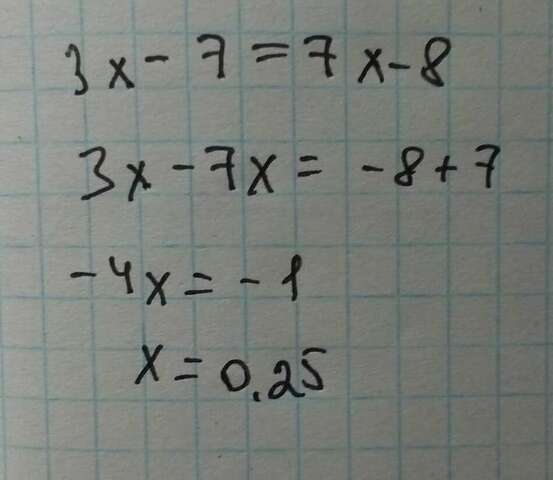 3x - 7 = 7x - 8
3x - 7x = -8 + 7
-4x = -1
x = 0.25